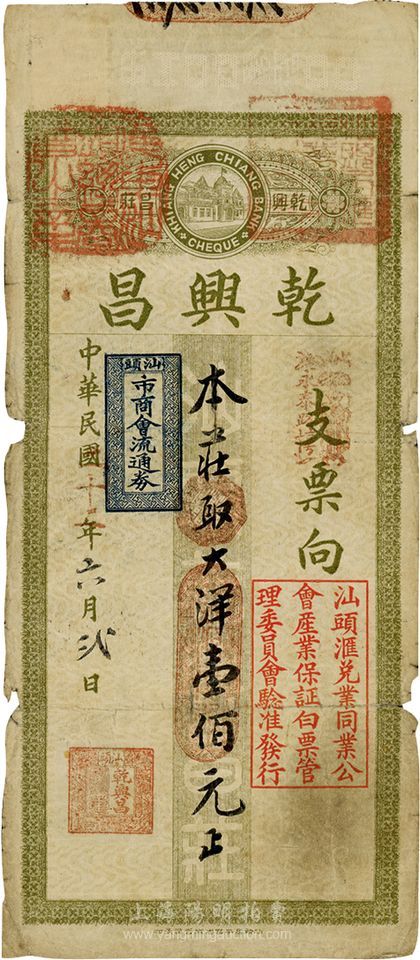 KHIANG HENG CHIANG BANK
CHEQUE
乾興
昌莊
乾興昌
支票向
本莊取大洋壹佰元正
汕頭滙兌業同業公
會産業保証白票管
理委員會驗准發行
汕頭
市商會流通券
中華民國十 年六月弍日
乾興昌
上海陽明拍賣
www.yangmingauction.com